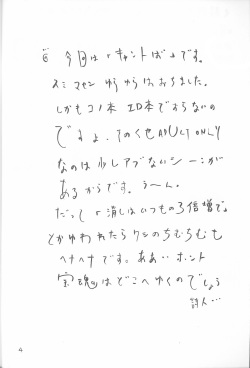 今回は「キャントば〜」です。
スミマセン
しかもコノ本 エロ本でおらないの
ですよ、そのくせADULT ONLY
なのは少しアブないシーンが
あるからです。う〜ん。
だって「消しはいつもの3倍増で」
とかゆわれたらワシのちむちむも
ヘナヘナです。ああ…ホント
宝魂はどこへゆくのでしょう
詩人…
4